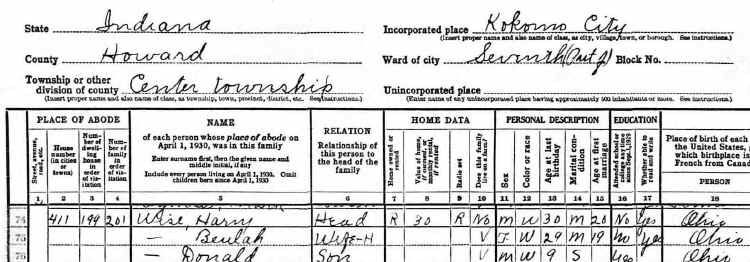 State Indiana
Incorporated place Kokomo City
(Insert proper name and also name of class, as city, village, town, or borough. See instructions.)
County Howard
Ward of city Seventh (Part of) Block No.
Township or other
division of county Center township
(Insert proper name and also name of class, as township, town, precinct, district, etc. See instructions.)
Unincorporated place
(Enter name of any unincorporated place having approximately 500 inhabitants or more. See instructions.)
PLACE OF ABODE NAME RELATION HOME DATA PERSONAL DESCRIPTION EDUCATION
of each person whose place of abode on
April 1, 1930, was in this family
Enter surname first, then the given name and
middle initial, if any
Include every person living on April 1, 1930. Omit
children born since April 1, 1930
Relationship of this
person to the head of the
family
Street, avenue, road, etc.
House number (in cities or towns)
Number of dwelling house in order of visitation
Number of family in order of visitation
Home owned or rented
Value of home, if owned, or monthly rental, if rented
Radio set
Does this family live on a farm?
Sex
Color or race
Age at last birthday
Marital condition
Age at first marriage
Attended school or college any time since Sept. 1, 1929
Whether able to read and write
Place of birth of each
the United States,
which birthplace is
French from Canada
PERSON
1 2 3 4 5 6 7 8 9 10 11 12 13 14 15 16 17 18
74 411 199 201 Wise, Harry Head R 30 R No M W 30 M 20 No Yes Ohio
75 — Beulah Wife-H V F W 29 M 19 No Yes Ohio
76 — Donald Son V M W 9 S Yes Ohio